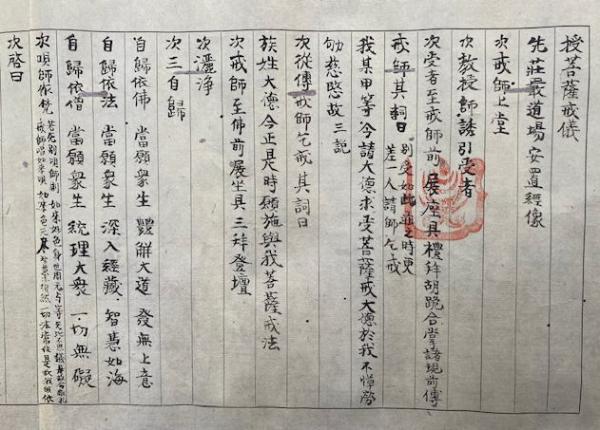 授菩薩戒儀
先莊嚴道場安置經像
次戒師上堂
次教授師誘引受者
次受者至戒師前展座具禮拜胡跪合掌諸境前傳
戒師其詞曰 別受如此並之時更
差一人請師乞戒
我某甲等今請大德求受菩薩戒大德於我不憚勞
劬慈愍故三説
次從傳戒師乞戒其詞曰
族姓大德今正是時願施與我菩薩戒法
次戒師至佛前展坐具三拜登壇
次灑淨
次三自歸
自歸依佛 當願衆生 體解大道 發無上意
自歸依法 當願衆生 深入經藏 智慧如海
自歸依僧 當願衆生 統理大衆 一切無礙
次唄師依梵
次啓白